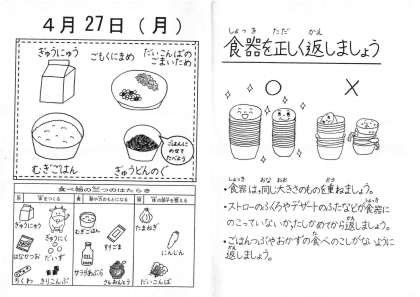 4月27日(月)
ぎゅうにゅう
ごもくにまめ
だいこんばの
ごまいため
むぎごはん
ぎゅうどんのぐ
ごはんに
のせて
たべよう
食べ物の三つのはたらき
体をつくる
熱や力のもとになる
体の調子を整える
ぎゅうにゅう
ぎゅうにく
はなかつお
だいず
ちくわ
きりこんぶ
むぎごはん
すりごま
サラダあぶら
さんおんとう
たまねぎ
にんじん
だいこんば
しょっき ただ かえ
食器を正しく返しましょう
○
×
しょっき おな おお かさ
・食器は、同じ大きさのものを重ねましょう。
・ストローのふくろやデザートのふたなどが食器に
のこっていないか、たしかめてから返しましょう。
・ごはんつぶやおかずの食べのこしがないように
返しましょう。